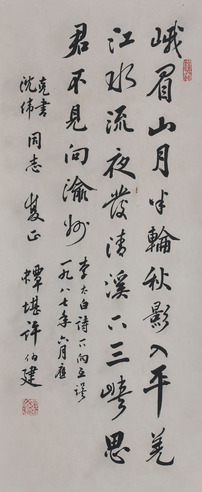 峨眉山月半輪秋影入平羌
江水流夜發清溪下三峽思
君不見向渝州
李太白詩下向互誤
一九八七年六月應
克書
沈偉
同志雙正
蟫堪许伯建